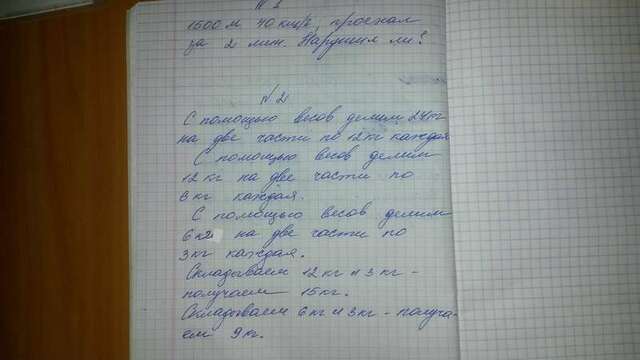 № 1
1500 м 40 км/ч, проехал
за 2 мин. Нарушил ли?
№ 2
С помощью весов делим 24 кг
на две части по 12 кг каждая
С помощью весов делим
12 кг на две части по
6 кг каждая.
С помощью весов делим
6 кг на две части по
3 кг каждая.
Складываем 12 кг и 3 кг -
получаем 15 кг.
Складываем 6 кг и 3 кг - получа-
ем 9 кг.